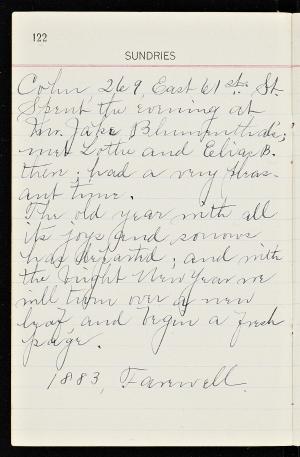 122
SUNDRIES
Cohn, 269, East 61st. St.
Spent the evening at
Mr. Jake Blumenthal's;
met Lottie and Elias B.
there; had a very pleas-
ant time.
The old year with all
its joys and sorrows
has departed; and with
the bright New Year we
will turn over a new
leaf, and begin a fresh
page.
1883, Farewell.